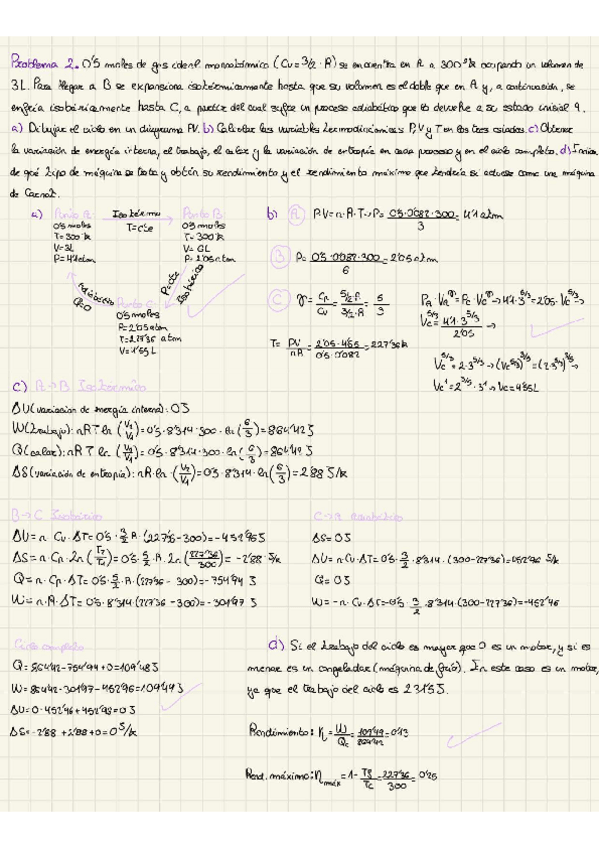 Problema 2. 0'5 moles de gas ideal monoatómico (Cv=3/2·R) se encuentra en A a 300ºK ocupando un volumen de
3L. Para llegar a B se expansiona isotérmicamente hasta que su volumen es el doble que en A y, a continuación, se
enfría isobáricamente hasta C, a partir del cual sufre un proceso adiabático que lo devuelve a su estado inicial A.
a) Dibujar el ciclo en un diagrama PV. b) Calcular las variables termodinámicas P, V y T en los tres estados. c) Obtener
la variación de energía interna, el trabajo, el calor y la variación de entropía en cada proceso y en el ciclo completo. d)
de qué tipo de máquina se trata y obtén su rendimiento y el rendimiento máximo que tendría si actuase como una máquina
de Carnot.
a) Punto A: Isotérmu Punto B:
0'5 moles T=cte 0'5 moles
T=300ºk T=300ºk
V=3L V=6L
P=4'1 atm P=2'05 atm
Adiabático Q=0
P=cte Isobárico
Punto C:
0'5 moles
P=2'05 atm
T=227'36 atm
V=4'55L
b) A P·V=n·R·T→P= 0'5·0'082·300/3 = 4'1 atm
B P= 0'5·0'082·300/6 = 2'05 atm
C γ= Cp/Cv = 5/2·R/3/2·R = 5/3
T= PV/nR = 2'05·4'55/0'5·0'082 = 227'36k
PA·VA^γ=PC·VC^γ→4'1·3^5/3=2'05·Vc^5/3→
Vc^5/3= 4'1·3^5/3/2'05 →
Vc^5/3=2·3^5/3→(Vc^5/3)^3/5=(2·3^5/3)^3/5→
Vc^1=2^3/5·3^1→Vc=4'55L
c) A→B Isotérmico
ΔU(variación de energía interna): 0J
W(trabajo): nRT ln (V2/V1)=0'5·8'314·300·ln(6/3)=864'42J
Q(calor): nRT ln (V2/V1)=0'5·8'314·300·ln(6/3)=864'42J
ΔS(variación de entropía): nR·ln·(V2/V1)=0'5·8'314·ln(6/3)=2'88 J/k
B→C Isobárico
ΔU=n·Cv·ΔT=0'5·3/2·R·(227'36-300)=-452'95J
ΔS=n·Cp·ln(Tf/Ti)=0'5·5/2·R·ln(227'36/300)=-2'88 J/k
Q=n·Cp·ΔT=0'5·5/2·R·(227'36-300)=-754'94J
W=n·R·ΔT=0'5·8'314(227'36-300)=-301'97J
C→A Adiabático
ΔS=0J
ΔU=n·Cv·ΔT=0'5·3/2·8'314·(300-227'36)=452'96 J/k
Q=0J
W=-n·Cv·ΔT=-0'5·3/2·8'314·(300-227'36)=-452'96
Ciclo completo
Q=864'42-754'94+0=109'48J
W=864'42-301'97-452'96=109'49J
ΔU=0-452'96+452'96=0J
ΔS=-2'88+2'88+0=0 J/k
d) Si el trabajo del ciclo es mayor que 0 es un motor, y si es
menor es un congelador (máquina de frío). En este caso es un motor,
ya que el trabajo del ciclo es
Rendimiento: η= W/Qc = 109'49/864'42 = 0'13
Rend. máximo: ηmáx=1- Tf/Tc = 227'36/300 = 0'25